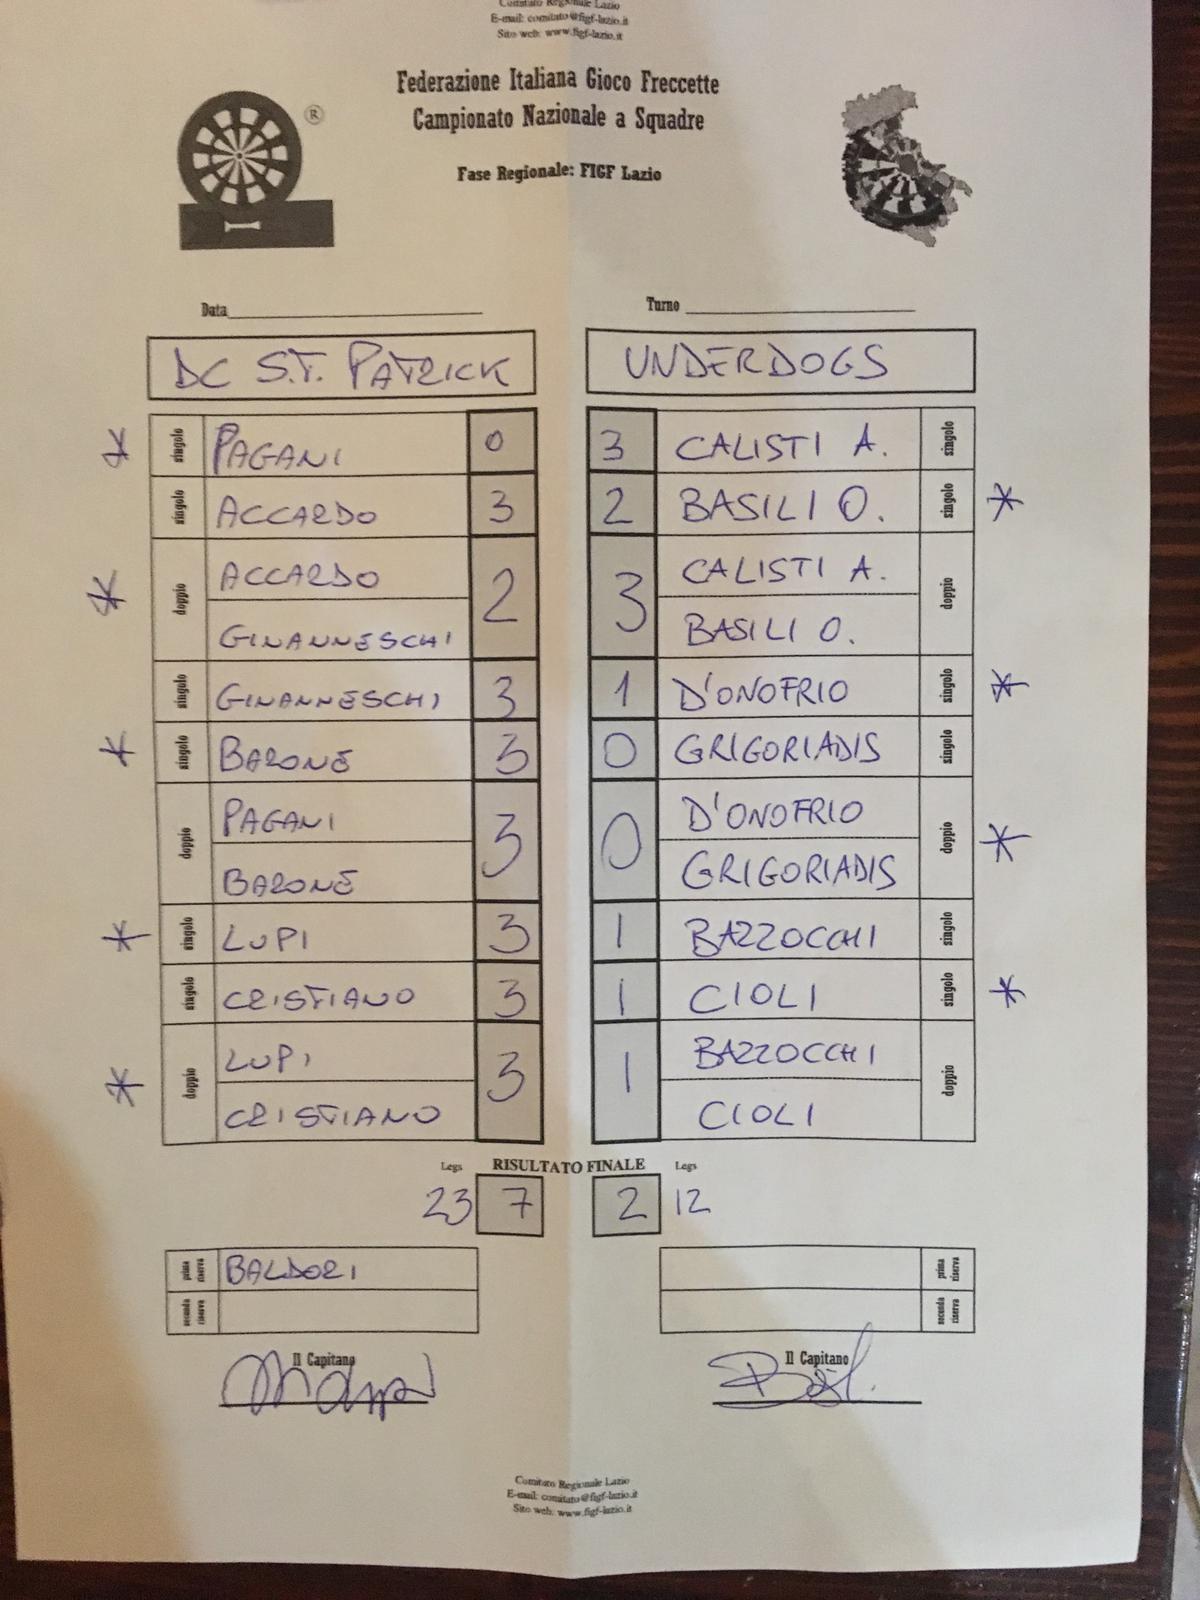 Comitato Regionale Lazio
E-mail: comitato@figf-lazio.it
Sito web: www.figf-lazio.it
Federazione Italiana Gioco Freccette
Campionato Nazionale a Squadre
Fase Regionale: FIGF Lazio
®
Data Turno
DC S.T. PATRICK UNDERDOGS
* singolo PAGANI 0 3 CALISTI A. singolo
singolo ACCARDO 3 2 BASILI O. singolo *
* doppio ACCARDO 2 3 CALISTI A. doppio
GINANNESCHI BASILI O.
singolo GINANNESCHI 3 1 D'ONOFRIO singolo *
* singolo BARONE 3 0 GRIGORIADIS singolo
doppio PAGANI 3 0 D'ONOFRIO doppio *
BARONE GRIGORIADIS
* singolo LUPI 3 1 BAZZOCCHI singolo
singolo CRISTIANO 3 1 CIOLI singolo *
* doppio LUPI 3 1 BAZZOCCHI doppio
CRISTIANO CIOLI
Legs RISULTATO FINALE Legs
23 7 2 12
prima riserva BALDORI prima riserva
seconda riserva seconda riserva
Il Capitano Il Capitano
Comitato Regionale Lazio
E-mail: comitato@figf-lazio.it
Sito web: www.figf-lazio.it